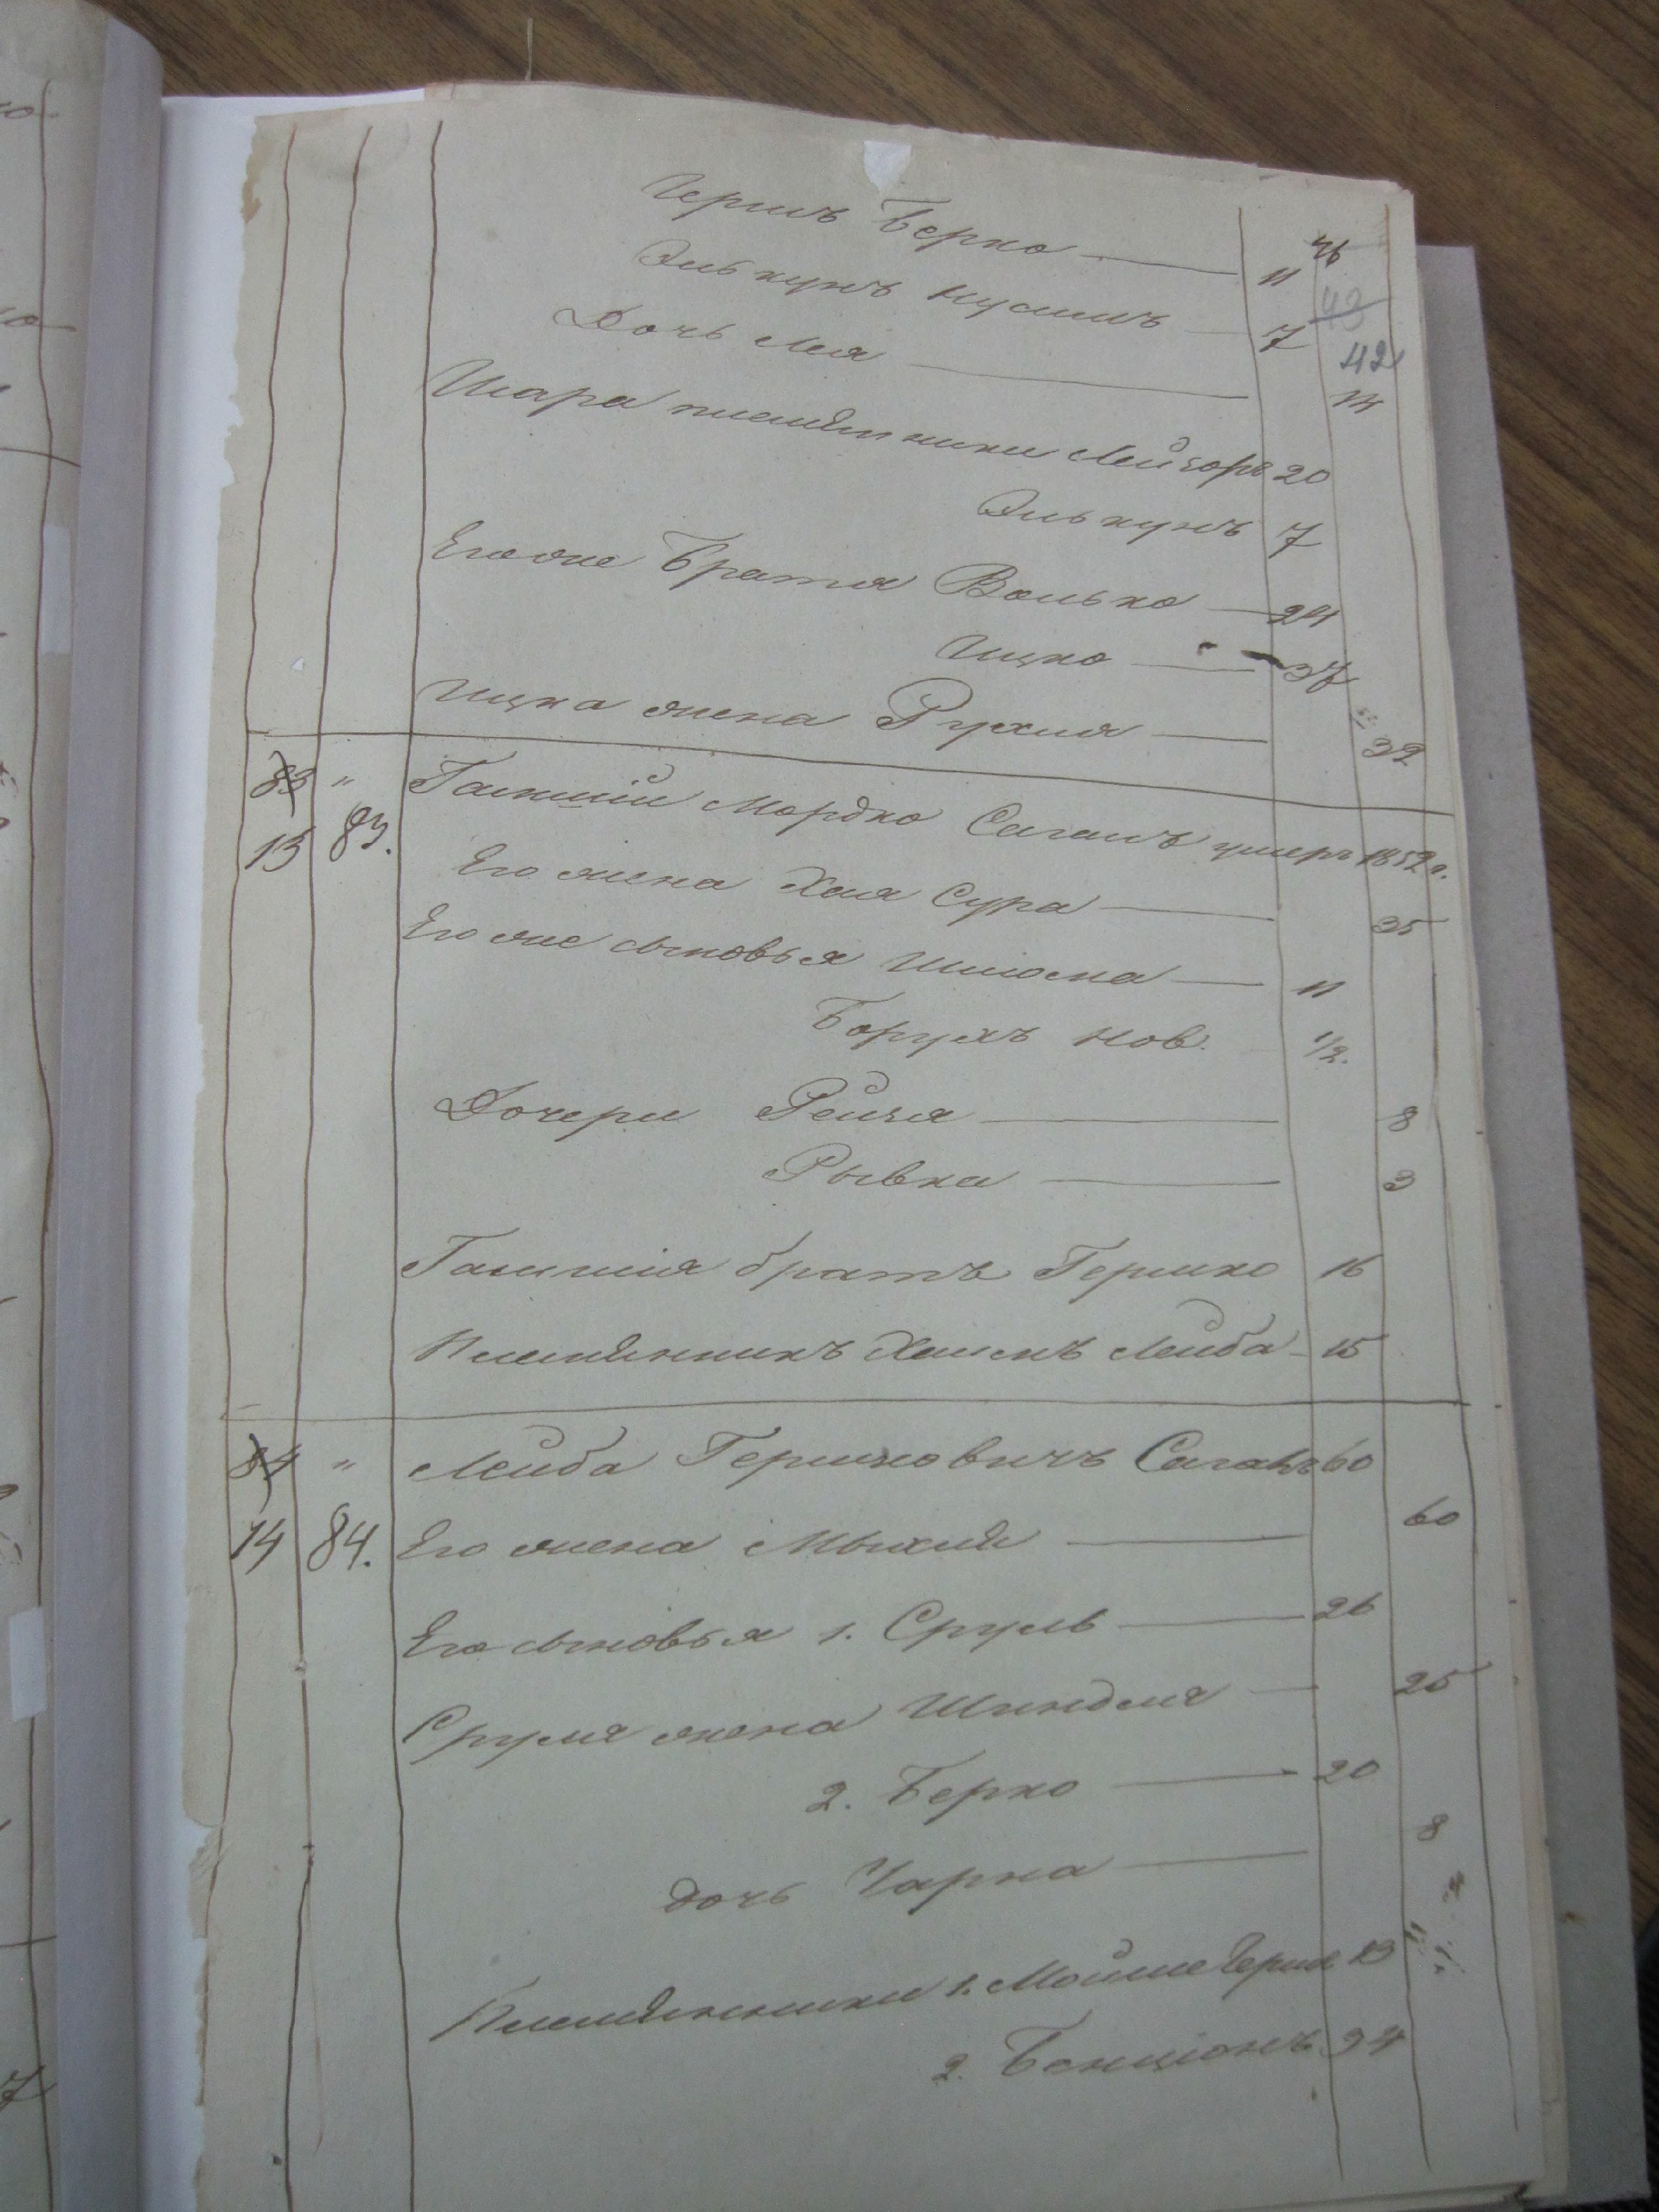 Гершъ Берко — 11
46
43
42
Элькунъ Нусинъ — 7
Дочь Лея — 14
Шара племянники Лейзоръ 20
Элькунъ 7
Его же братья Волько — 24
Ицко — 37
Ицка жена Рухля — 32
83 "
Гакшій Мордко Саганъ умеръ 1852 г.
13 83.
Его жена Хая Сура — 35
Его же сыновья Шлома — 11
Борухъ нов. 1/2.
Дочери Рейзя — 8
Рывка — 3
братъ Гершко 16
Племянникъ Хаимъ Лейба — 15
84 " Лейба Гершковичъ Саганъ 60
14 84. Его жена Мыхля — 60
Его сыновья 1. Сруль — 26
Сруля жена Шиндля — 25
2. Берко — 20
дочь Чарна — 8
Племянники 1. Мойше Герш 13
2. Бенціонъ 24